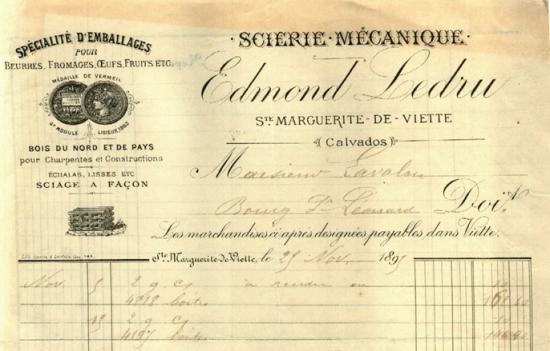 SPÉCIALITÉ D'EMBALLAGES
POUR
BEURRES, FROMAGES, ŒUFS, FRUITS ETC.
MÉDAILLE DE VERMEIL
LISIEUX
BOIS DU NORD ET DE PAYS
pour Charpentes et Constructions
ÉCHALAS, LISSES ETC
SCIAGE A FAÇON
SCIERIE·MÉCANIQUE
Edmond Ledru
STE MARGUERITE-DE-VIETTE
(Calvados)
Monsieur
Bourg St Léonard Doit
Les marchandises ci après designées payables dans Viette.
Ste Marguerite-de-Viette, le 25 Nov. 189
Nov. 5 2 g cs à rendre
4818 boites
19 2 g cs
4197 boites